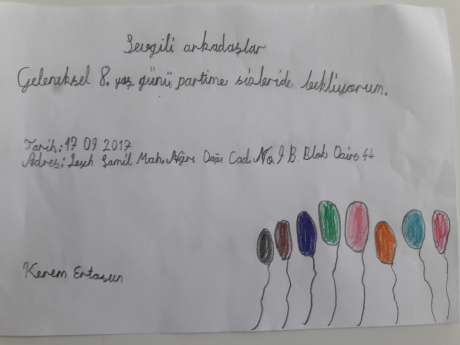 Sevgili arkadaşlar
Geleneksel 8. yaş günü partime sizleride bekliyorum.
Tarih: 17 09 2017
Adres: Şeyh Şamil Mah. Ağrı Dağı Cad. No 9 B Blok Daire 44
Kerem Ertosun